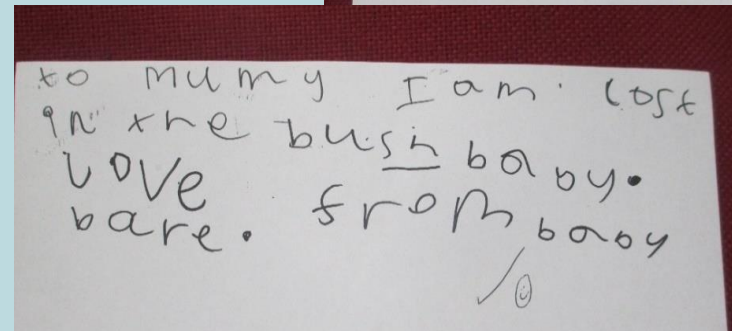 to mumy I am. lost
in the bush baby.
Love
bare. from baby